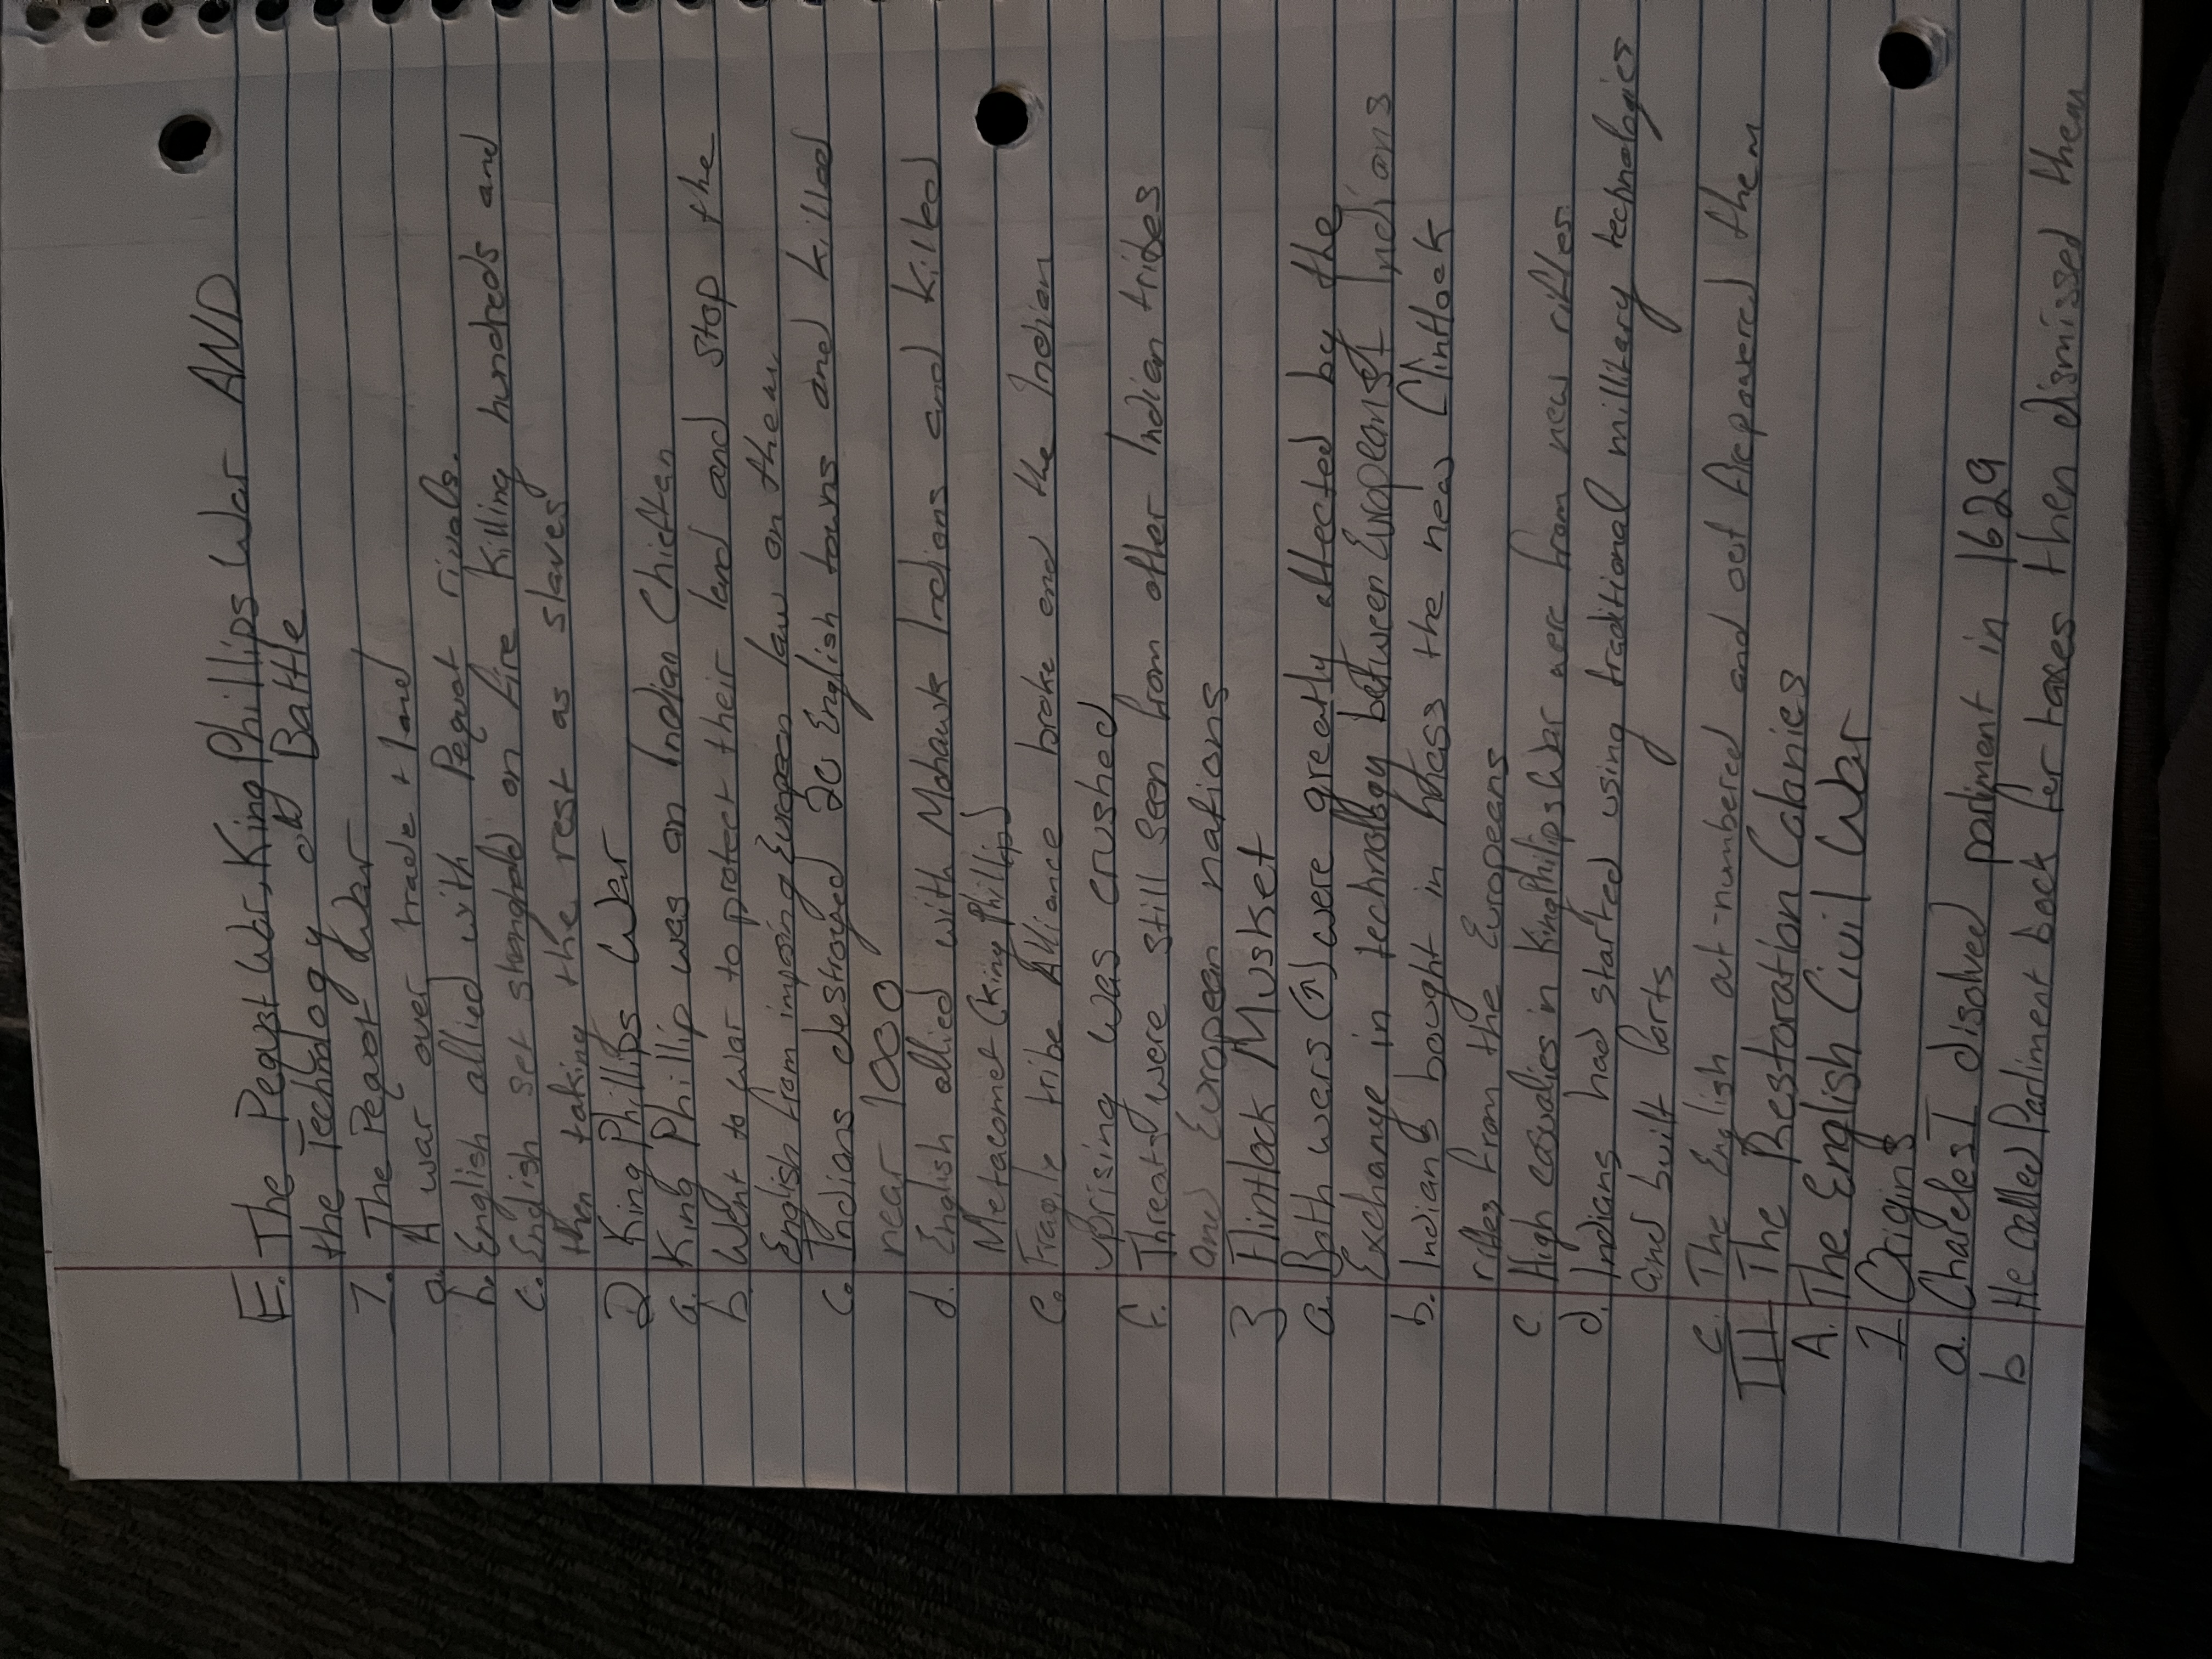 E. The Pequot War, King Phillips War AND
the Technology of Battle
1. The Peqot War
a. A war over trade + land
b. English allied with Pequot rivals.
c. English set stronghold on fire killing hundreds and
then taking the rest as slaves
2 King Phillips War
a. King Phillip was an Indian Chieften
b. Went to war to protect their land and stop the
English from imposing European law on them
c. Indians destroyed 20 English towns and killed
near 1000
d. English allied with Mohawk Indians and killed
Metacomet (King Phillip)
e. Fragile tribe Alliance broke and the Indian
uprising was crushed
f. Threats were still seen from other Indian tribes
and European nations
3 Flintlock Musket
a. Both wars (↑) were greatly affected by the
Exchange in technology between Europeans + Indians
b. Indians bought in mass the new flintlock
rifles from the Europeans
c. High casualies in King Philips War were from new rifles
d. Indians had started using traditional millitary technologies
and built forts
e. The English out-numbered and out firepowered them
III The Restoration Colonies
A. The English Civil War
1 Origins
a. Charles I disolved parliment in 1629
b He called Parliment back for taxes then dismissed them